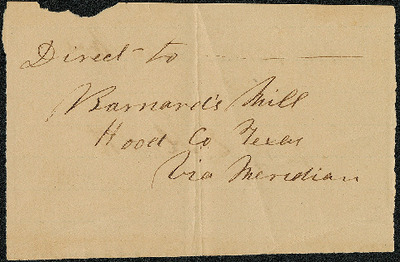 Direct to
Barnard's Mill
Hood Co Texas
Via Meridian